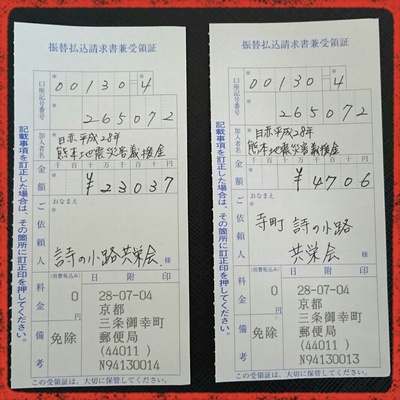 振替払込請求書兼受領証
口座記号番号
00130=4
265072
加入者名
日赤平成28年
熊本地震災害義援金
金額
千百十万千百十円
¥23037
ご依頼人
おなまえ
詩の小路共栄会 様
料金
(消費税込み)
0円
備考
免除
日附印
28-07-04
京都
三条御幸町
郵便局
(44011 )
N94130014
この受領証は、大切に保管してください。
記載事項を訂正した場合は、その箇所に訂正印を押してください。
振替払込請求書兼受領証
口座記号番号
00130=4
265072
加入者名
日赤平成28年
熊本地震災害義援金
金額
千百十万千百十円
¥4706
ご依頼人
おなまえ
寺町 詩の小路
共栄会 様
料金
(消費税込み)
0円
備考
免除
日附印
28-07-04
京都
三条御幸町
郵便局
(44011 )
N94130013
この受領証は、大切に保管してください。
記載事項を訂正した場合は、その箇所に訂正印を押してください。